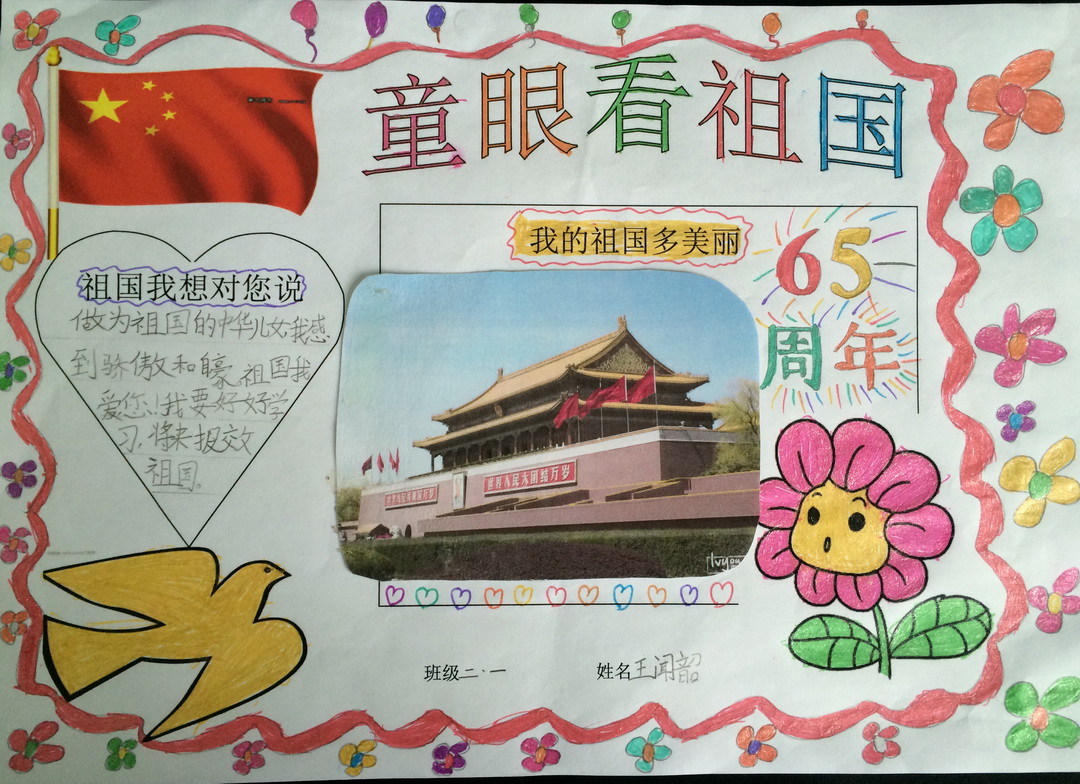 童眼看祖国
我的祖国多美丽
65
周年
祖国我想对您说
做为祖国的中华儿女,我感
到骄傲和自豪.祖国我
爱您!!我要好好学
习,将来报效
祖国。
世界人民大团结万岁
班级二·一
姓名王闻韶